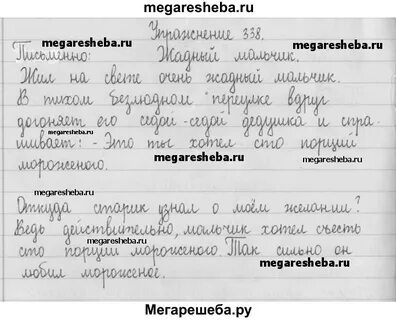 megaresheba.ru
Упражнение 338.
megaresheba.ru
megaresheba.ru
Письменно: Жадный мальчик.
Жил на свете очень жадный мальчик.
megaresheba.ru
В тихом безлюдном переулке вдруг
догоняет его седой-седой дедушка и спра-
megaresheba.ru
шивает: - Это ты хотел сто порций
мороженого.
megaresheba.ru
megaresheba.ru
Откуда старик узнал о моём желании?
Ведь действительно, мальчик хотел съесть
megaresheba.ru
сто порций мороженого. Так сильно он
megaresheba.ru
любил мороженое.
Мегарешеба.ру